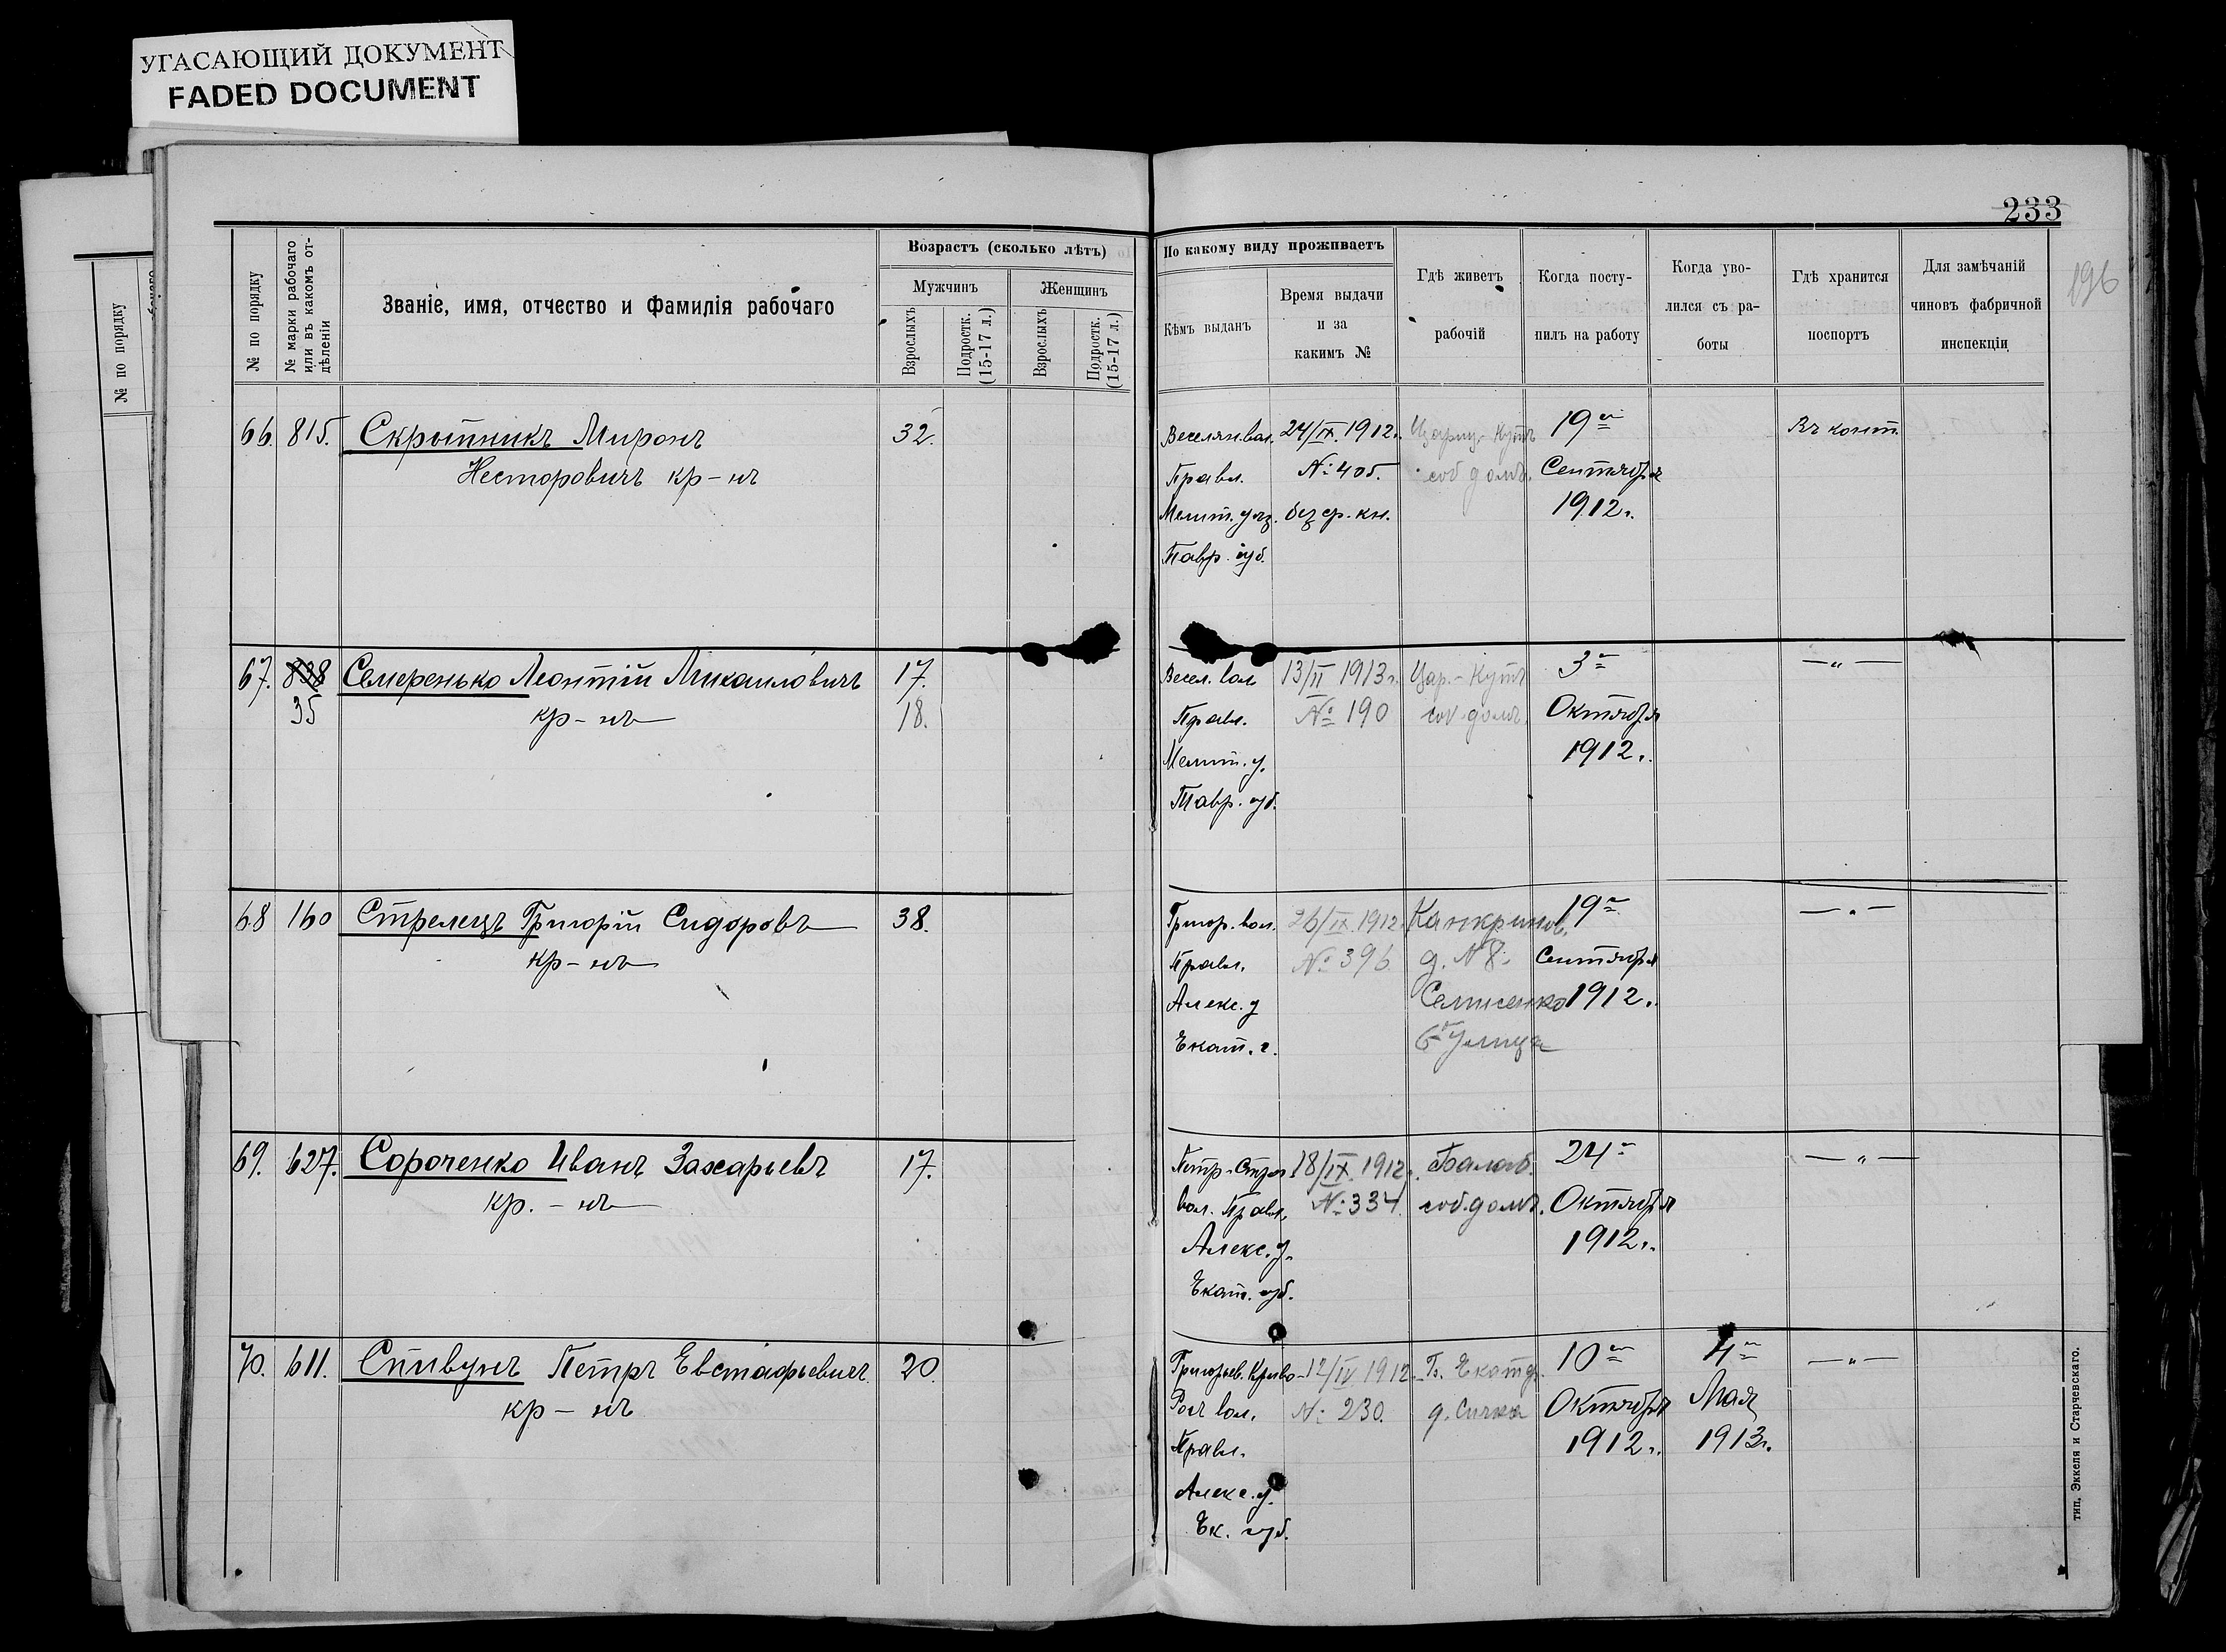 УГАСАЮЩИЙ ДОКУМЕНТ
FADED DOCUMENT
233
196
№ по порядку
№ по порядку
№ марки рабочаго
или въ какомъ от-
дѣленіи
Званіе, имя, отчество и фамилія рабочаго
Возрастъ (сколько лѣтъ)
Мужчинъ
Женщинъ
Взрослыхъ
Подростк.
(15-17 л.)
Взрослыхъ
Подростк.
(15-17 л.)
По какому виду проживаетъ
Кѣмъ выданъ
Время выдачи
и за
какимъ №
Гдѣ живетъ
рабочій
Когда посту-
пилъ на работу
Когда уво-
лился съ ра-
боты
Гдѣ хранится
поспортъ
Для замѣчаній
чиновъ фабричной
инспекціи
66. 815. Скрыпникъ Миронъ
Несторовичъ кр-нъ
32.
Веселян. вол.
Правл.
Мелит. уѣз.
Тавр. губ.
24/IX. 1912г.
№ 405.
без ср. кн.
Цариц.-Кутъ
соб домъ.
19го
Сентября
1912г.
Въ конт.
67. 838
35
Семеренько Леонтій Михаиловичъ
кр-нъ
17.
18.
Весел. вол.
Правл.
Мелит. у.
Тавр. губ.
13/II 1913г.
№ 190
Цар.-Кутъ
соб домъ.
3го
Октября
1912г.
— „ —
68 160 Стрелецъ Григорій Сидоровъ
кр-нъ
38.
Григор. вол.
Правл.
Алекс. у
Екат. г.
26/IX. 1912
№ 396
Канкринов.
д. № 8.
6я Улица
19го
Сентября
1912г.
— „ —
69. 627. Сороченко Иванъ Захарьевъ
кр.-нъ
17.
вол. Правл.
Алекс. у.
Екат. губ.
18/IX. 1912г.
№ 334
Балаб.
соб. домъ.
24го
Октября
1912г.
— „ —
70. 611. Спивунъ Петръ Евстафьевичъ
кр-нъ
20.
Григорьев. Криво-
Рог вол.
Правл.
Алекс. у.
Ек. губ.
12/IV 1912
№ 230.
10го
Октября
1912г.
4го
Мая
1913г.
— „ —
тип. Эккеля и Старчевскаго.